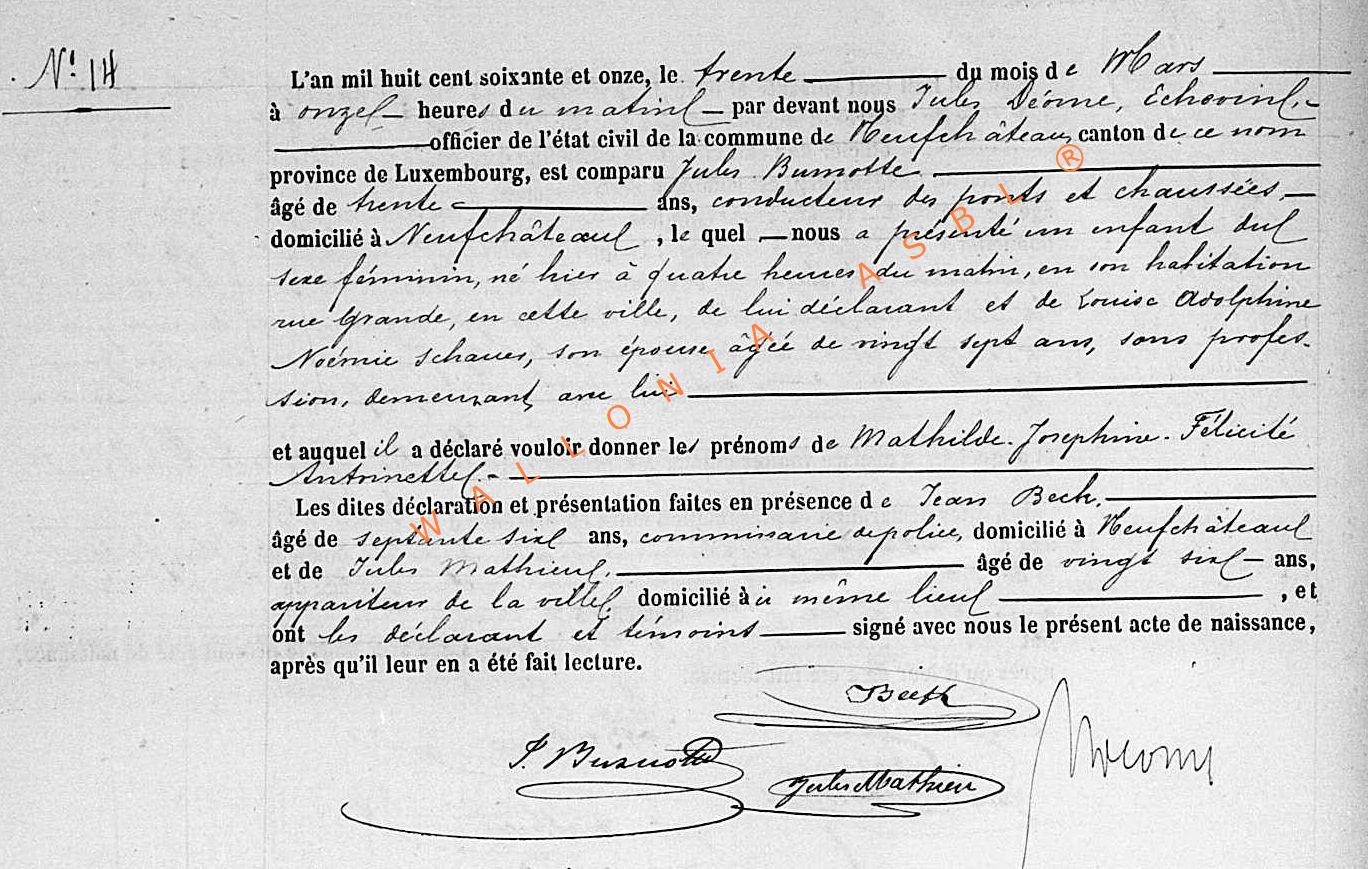 N° 14
L'an mil huit cent soixante et onze, le trente du mois de Mars
à onze heures du matin par devant nous Jules Echevin,
officier de l'état civil de la commune de Neufchâteau, canton de ce nom
province de Luxembourg, est comparu Jules Burnotte
âgé de trente ans, conducteur des ponts et chaussées,
domicilié à Neufchâteau, le quel nous a présenté un enfant du
sexe féminin, né hier à quatre heures du matin, en son habitation
rue Grande, en cette ville, de lui déclarant et de Louise Adolphine
Noémie Schauer, son épouse, âgée de vingt sept ans, sans profes-
sion, demeurant avec lui
et auquel il a déclaré vouloir donner les prénoms de Mathilde-Josephine-Félicité
Antoinette.
Les dites déclaration et présentation faites en présence de Jean Beck,
âgé de septante six ans, commissaire de police, domicilié à Neufchâteau
et de Jules Mathieu, âgé de vingt six ans,
appariteur de la ville, domicilié à même lieu, et
ont les déclarant et témoins signé avec nous le présent acte de naissance,
après qu'il leur en a été fait lecture.
Beck
J. Burnotte
Jules Mathieu
WALLONIA ASBL ®